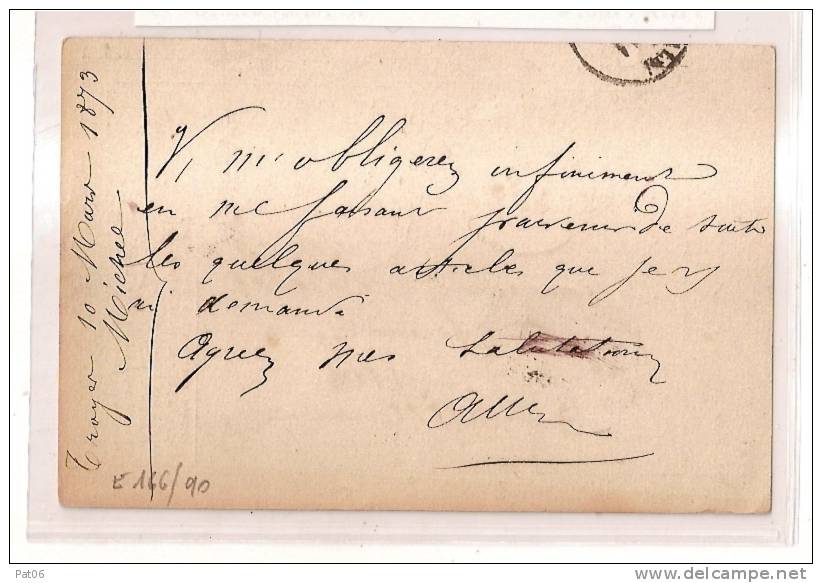 Troyes 10 Mars 1873
Michel
V, m'obligerez infiniment
en me faisant parvenir de suite
les quelques articles que je v
ai demandé
Agréez mes salutations
E 166/90
Pat06
www.delcampe.net